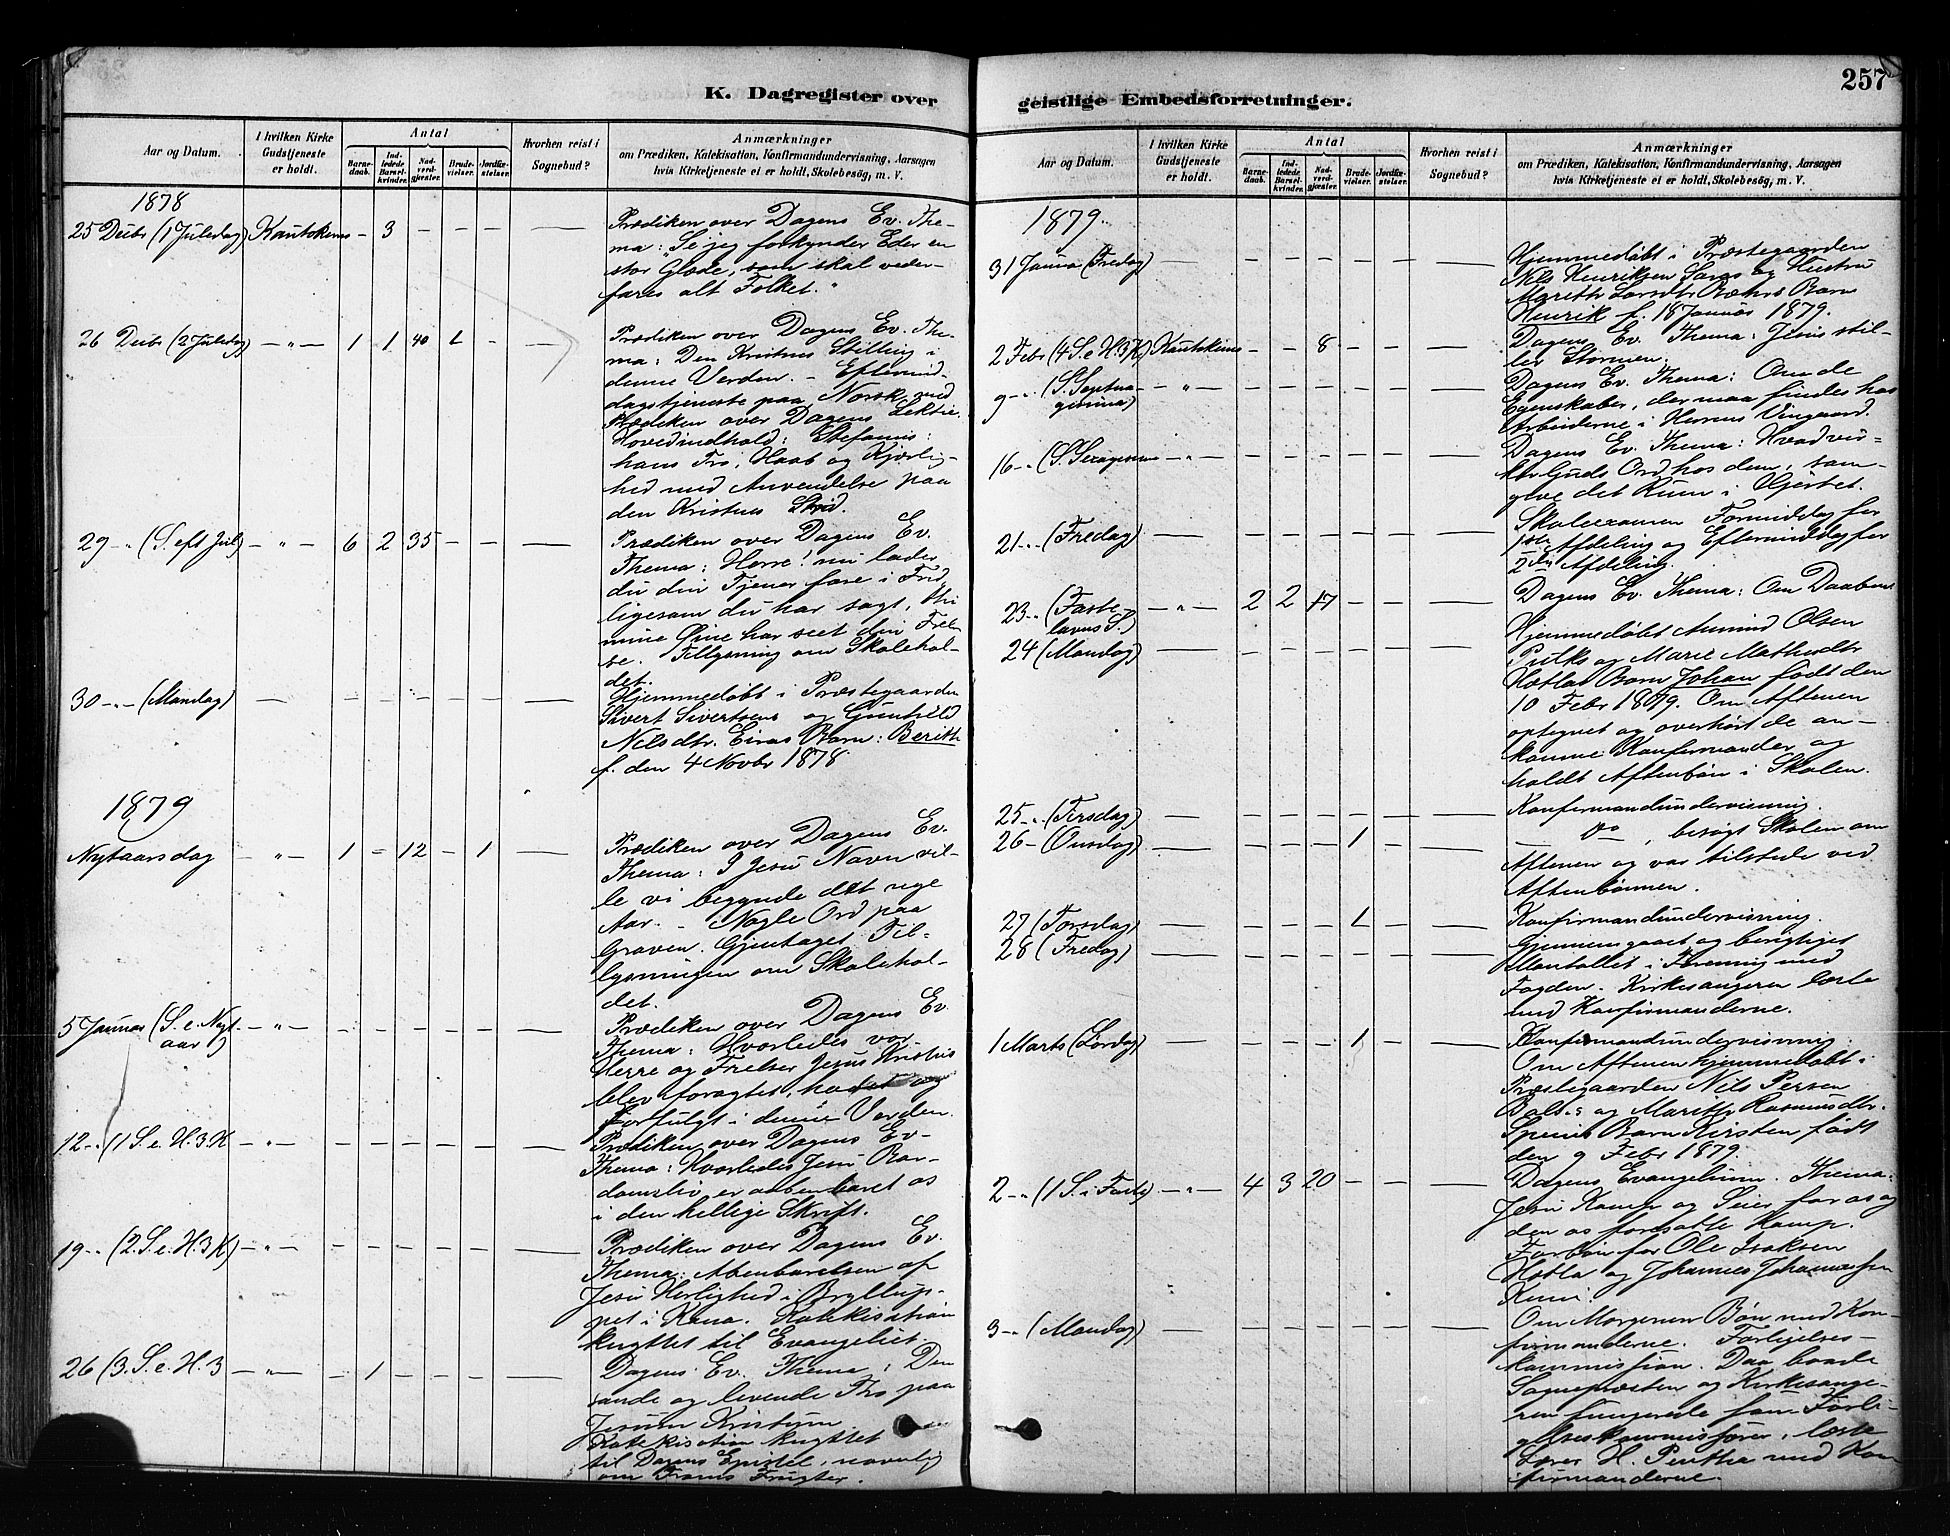 K. Dagregister over
Aar og Datum.
I hvilken Kirke Gudstjeneste er holdt.
Antal
Barnedaab.
Indledede Barselkvinder.
Nadverdgjester.
Brudevielser.
Jordfæstelser.
Hvorhen reist i Sognebud?
Anmærkninger
om Prædiken, Katekisation, Konfirmandundervisning, Aarsagen
hvis Kirketjeneste ei er holdt, Skolebesøg, m. V.
1878
25 Decbr (1 Juledag) Kautokeino - 3 - - - —
Prædiken over Dagens Ev. The-
ma: "Se jeg forkynder Eder en
stor Glæde, som skal veder-
fares alt Folket."
26 Decbr (2 Juledag) — " — 1 1 40 1 - —
Prædiken over Dagens Ev. The-
ma: Den Kristnes Stilling i
denne Verden. - Eftermid-
dagstjeneste paa Norsk med
Prædiken over Dagens Lektie.
Hovedindhold: Stefanus:
hans Tro, Haab og Kjærlig-
hed med Anvendelse paa
den Kristnes Strid.
29 -"- (S. eft Jul) — " — 6 2 35 - - —
Prædiken over Dagens Ev.
Thema: Herre! nu lader
du din Tjener fare i Fred,
ligesom du har sagt, thi
mine Øine har seet din Frel-
se. Tillysning om Skolehol-
det.
30 -"- (Mandag) — - - - - - —
Hjemmedøbt i Præstegaarden
Sivert Sivertsens og Gunhild
Nilsdtr. Eiras Barn: Berith
f. den 4 Novbr 1878
1879
Nytaarsdag — " — 1 - 12 - 1 —
Prædiken over Dagens Ev.
Thema: I Jesu Navn vil-
le vi begynde det nye
Aar. - Nogle Ord paa
Graven. Gjentaget Til-
lysningen om Skolehol-
det.
5 Januar (S. e. Nyt- — " — - - - - - —
aar)
Prædiken over Dagens Ev
Thema: Hvorledes vor
Herre og Frelser Jesus Kristus
blev foragtet, hadet og
forfulgt i denne Verden.
12 -"- (1 S. e. H. 3. K — " — - - - - - —
Prædiken over Dagens Ev-
Thema: Hvorledes Jesu Bar-
domsliv er aabenbaret os
i den hellige Skrift.
19 -"- (2. S. e. H. 3 K) — " — - - - - - —
Prædiken over Dagens Ev.
Thema: Abenbarelsen af
Jesu Herlighed i Bryllup-
pet i Kana. Katekisation
knyttet til Evangeliet.
26 (3. S. e. H. 3 — " — - 1 - - - —
Dagens Ev. Thema: Den
sande og levende Tro paa
Jesum Kristum
Katekisation knyttet
til Dagens Epistel, navnlig
om Troens Frugter.
geistlige Embedsforretninger.
257
Aar og Datum.
I hvilken Kirke Gudstjeneste er holdt.
Antal
Barnedaab.
Indledede Barselkvinder.
Nadverdgjester.
Brudevielser.
Jordfæstelser.
Hvorhen reist i Sognebud?
Anmærkninger
om Prædiken, Katekisation, Konfirmandundervisning, Aarsagen
hvis Kirketjeneste ei er holdt, Skolebesøg, m. V.
1879.
31 Janua (Fredag) — - - - - - —
Hjemmedøbt i Præstegaarden
Nils Henriksen Saras og Hustru
Marith Larsdtr Bæhrs Barn
Henrik f. 18 Januar 1879.
2 Febr (4 S. e. H. 3 K) Kautokeino - - 8 - - —
Dagens Ev. Thema: Jesus stil-
ler Stormen.
9 -"- (S. Septua- — " — - - - - - —
gesima)
Dagens Ev. Thema: Om de
Egenskaber, der maa findes hos
Arbeiderne i Herrens Vingaard.
16 -"- (S. Sexagesima — " — - - - - - —
Dagens Ev. Thema: Hvad vir-
ker Guds Ord hos dem, som
give det Rum i Hjertet.
21 -"- (Fredag) — - - - - - —
Skoleexamen Formiddag for
1ste Afdeling og Eftermiddag for
2den Afdeling.
23 -"- (Faste- — " — 2 2 17 - - —
lavns S.)
Dagens Ev. Thema: Om Daaben
24 (Mandag) — - - - - - —
Hjemmedøbt Amund Olsen
Pulks og Marie Mathisdtr
Hætlas Barn Johan født den
10 Febr 1879. Om Aftenen
optegnet og overhørt de an-
komne Konfirmander og
holdt Aftenbøn i Skolen.
25 -"- (Tirsdag) — - - - - - —
Konfirmandundervisning.
26 - (Onsdag) — - - - 1 - —
— Do —, besøgt Skolen om
Aftenen og var tilstede ved
Aftenbønnen.
27 (Torsdag) — - - - 1 - —
Konfirmandundervisning.
28 (Fredag) — - - - - - —
Gjennemgaaet og berigtiget
Mantallet i Forening med
Fogden. Kirkesangeren læste
med Konfirmanderne.
1 Marts (Lørdag) — - - - 1 - —
Konfirmandundervisning
Om Aftenen hjemmedøbt i
Præstegaarden Nils Persen
Bals: og Marith Rasmusdtr.
Speins Barn Kirsten født
den 9 Febr 1879.
2 -"- (1 S. i Faste) — " — 4 3 20 - - —
Dagens Evangelium. Thema:
Jesu Kamp og Seier for os og
den os foresatte Kamp.
Forbøn for Ole Isaksen
Hætla og Johannes Johannessen
3 -"- (Mandag) — - - - - - —
Om Morgenen Bøn med Kon-
firmanderne. Forligelses-
kommission. Daa baade
Sognepræsten og Kirkesange-
ren fungerede som Forli-
gelseskommissærer, læste
Lærer H. Pentha med Kon-
firmanderne.